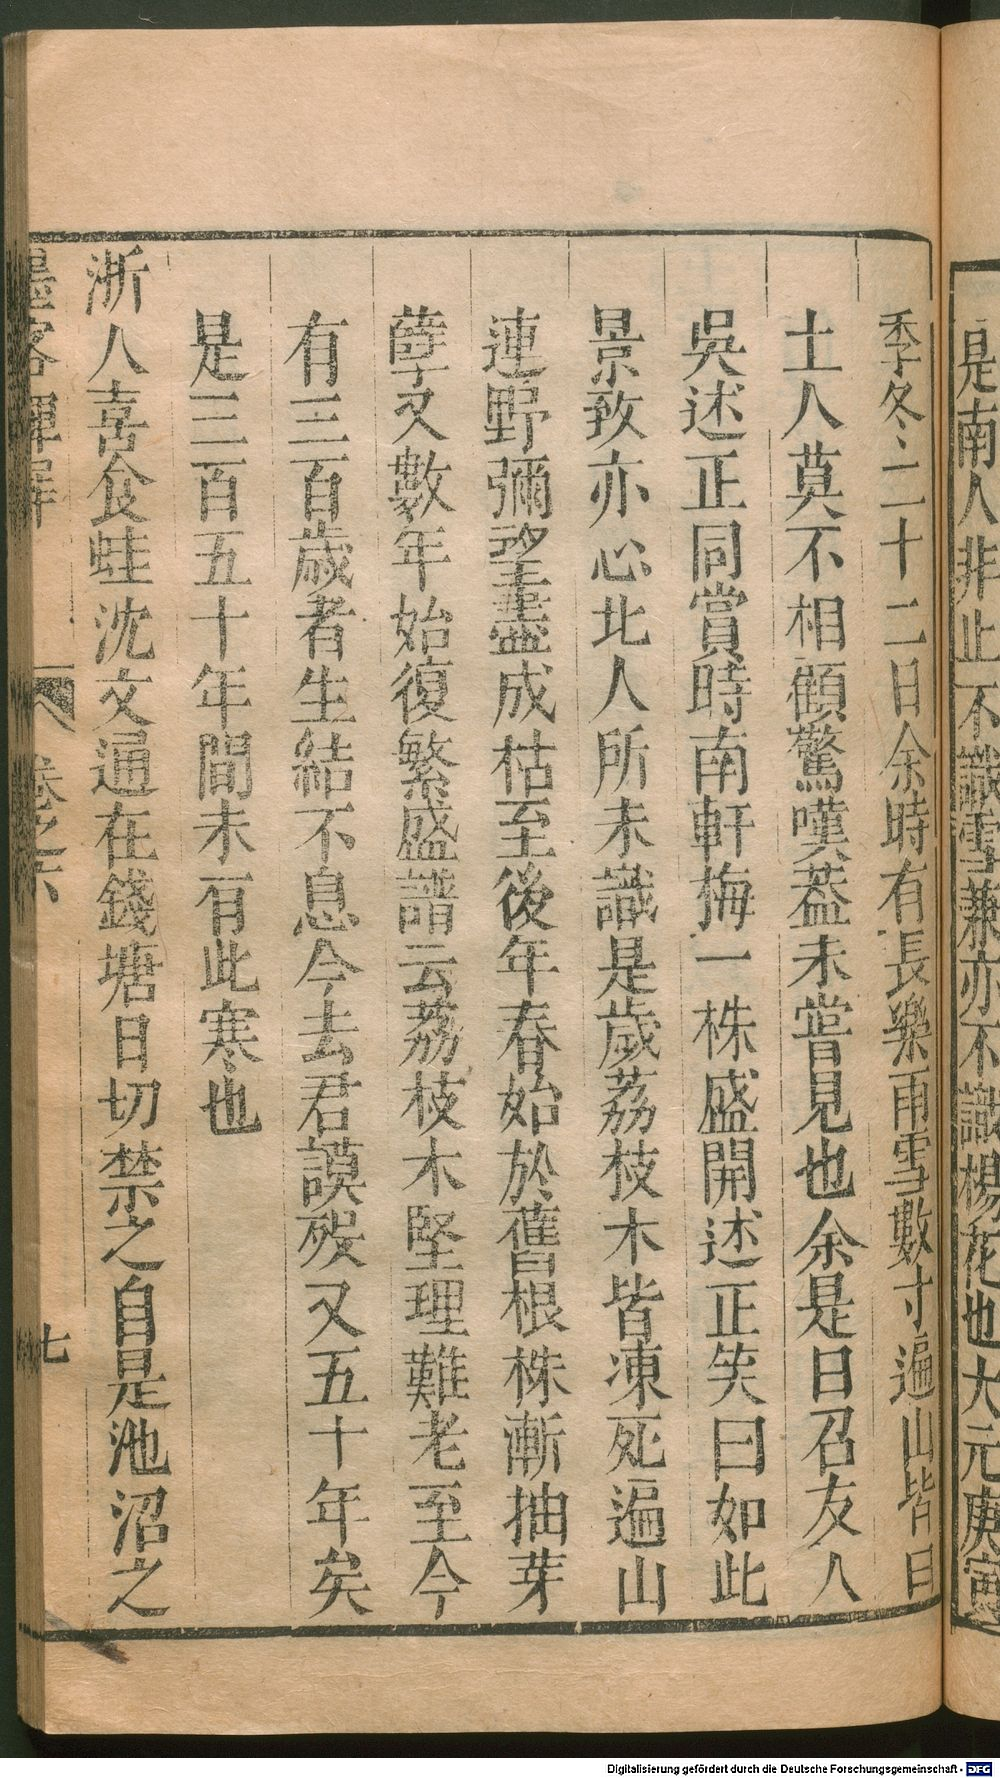 是南人非止不識雪兼亦不識楊花也大元庚寅
季冬二十二日余時有長樂雨雪數寸遍山皆白
土人莫不相顧驚嘆葢未嘗見也余是日召友人
吳述正同賞時南軒梅一株盛開述正笑曰如此
景致亦恐北人所未識是歲荔枝木皆凍死遍山
連野彌望盡成枯至後年春始於舊根株漸抽芽
孽又數年始復繁盛譜云荔枝木堅理難老至今
有三百歲者生結不息今去君謨歿又五十年矣
是三百五十年間未有此寒也
浙人喜食蛙沈文通在錢塘日切禁之自是池沼之
墨客揮犀 卷之六 七
Digitalisierung gefördert durch die Deutsche Forschungsgemeinschaft - DFG